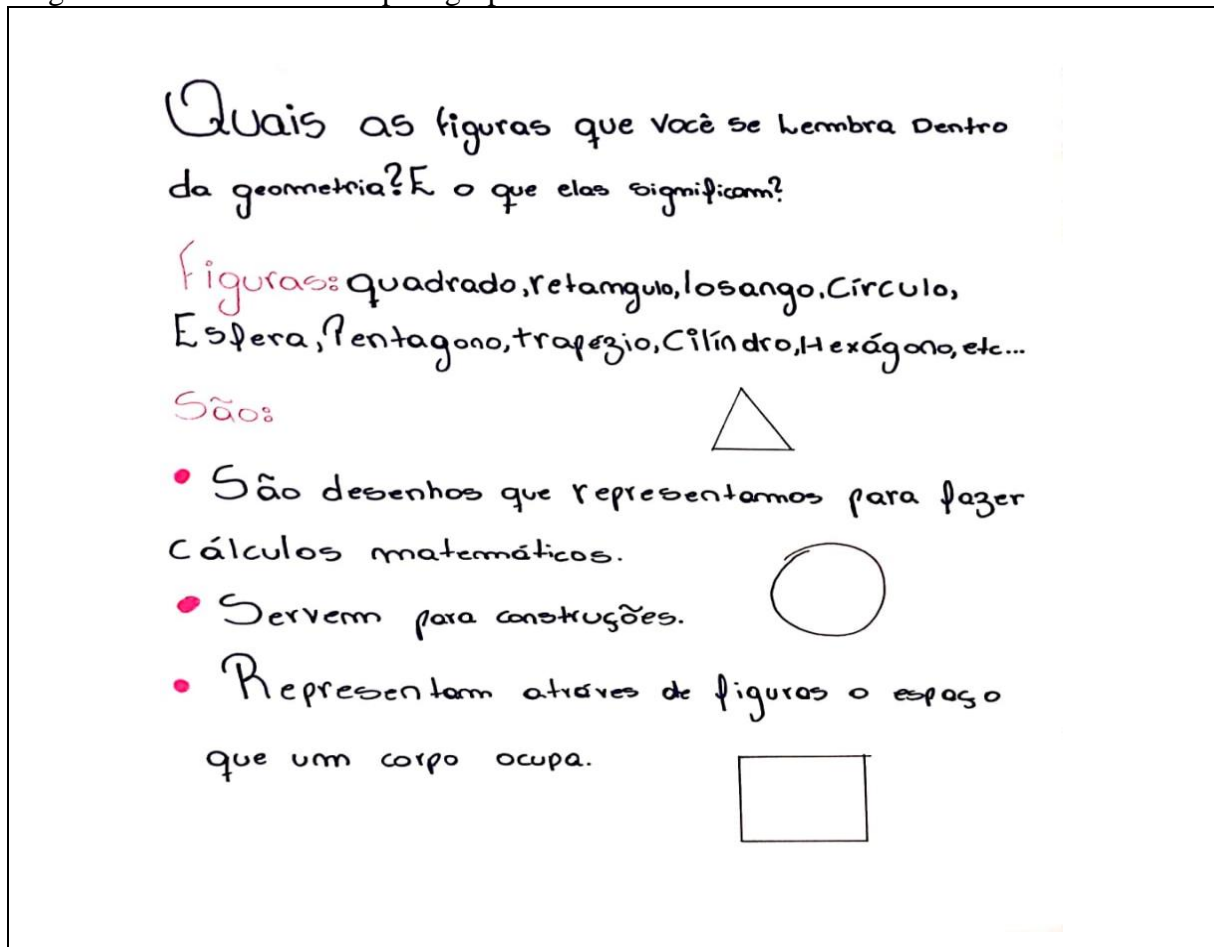 Quais as figuras que você se Lembra Dentro
da geometria? E o que elas significam?
Figuras: quadrado, retangulo, losango, Círculo,
Esfera, Pentagono, trapézio, Cilíndro, Hexágono, etc...
São:
• São desenhos que representamos para fazer
Cálculos matemáticos.
• Servem para construções.
• Representam atráves de figuras o espaço
que um corpo ocupa.